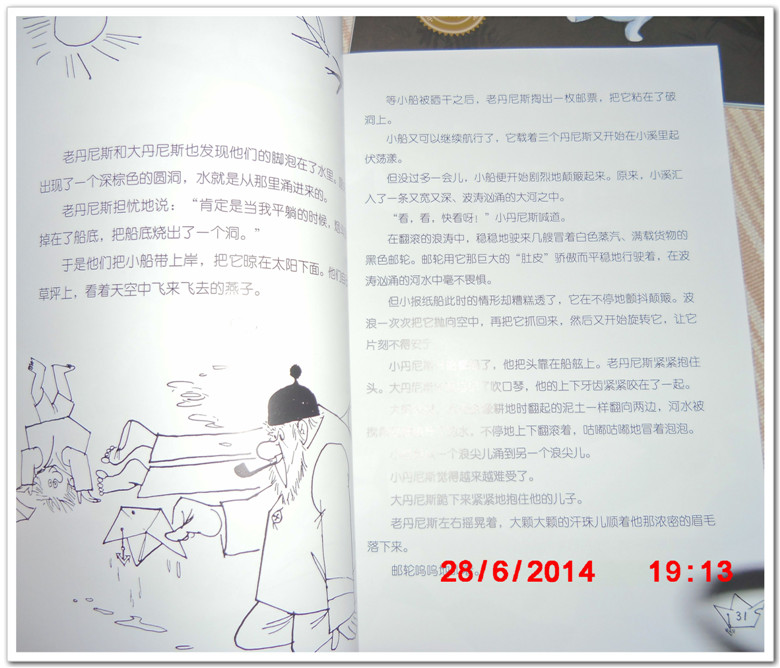 老丹尼斯和大丹尼斯也发现他们的脚泡在了水里。
出现了一个深棕色的圆洞，水就是从那里涌进来的。
老丹尼斯担忧地说：“肯定是当我平躺的时候，
掉在了船底，把船底烧出了一个洞。”
于是他们把小船带上岸，把它晾在太阳下面。他们
草坪上，看着天空中飞来飞去的燕子。
等小船被晒干之后，老丹尼斯掏出一枚邮票，把它粘在了破
洞上。
小船又可以继续航行了，它载着三个丹尼斯又开始在小溪里起
伏荡漾。
但没过多一会儿，小船便开始剧烈地颠簸起来。原来，小溪汇
入了一条又宽又深、波涛汹涌的大河之中。
“看，看，快看呀！”小丹尼斯喊道。
在翻滚的浪涛中，稳稳地驶来几艘冒着白色蒸汽、满载货物的
黑色邮轮。邮轮用它那巨大的“肚皮”骄傲而平稳地行驶着，在波
涛汹涌的河水中毫不畏惧。
但小报纸船此时的情形却糟糕透了，它在不停地颤抖颠簸。波
浪一次次把它抛向空中，再把它抓回来，然后又开始旋转它，让它
片刻不得
小丹尼斯 了，他把头靠在船舷上。老丹尼斯紧紧抱住
头。大丹尼 了吹口琴，他的上下牙齿紧紧咬在了一起。
耕地时翻起的泥土一样翻向两边，河水被
水。不停地上下翻滚着，咕嘟咕嘟地冒着泡泡。
一个浪尖儿涌到另一个浪尖儿。
小丹尼斯觉得越来越难受了。
大丹尼斯跪下来紧紧地抱住他的儿子。
老丹尼斯左右摇晃着，大颗大颗的汗珠儿顺着他那浓密的眉毛
落下来。
邮轮呜呜地
28/6/2014 19:13
31